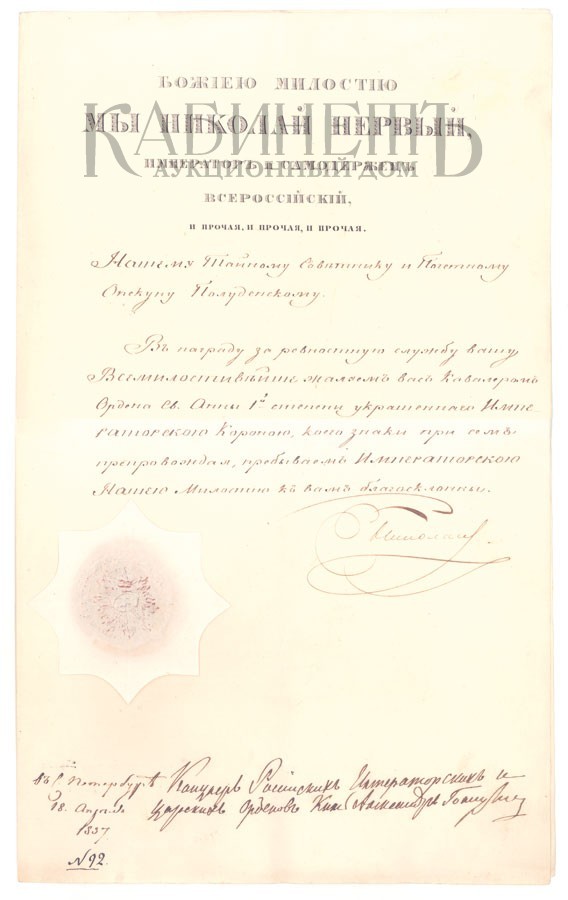 БОЖІЕЮ МИЛОСТІЮ
МЫ НИКОЛАЙ ПЕРВЫЙ,
КАБИНЕТЪ
ИМПЕРАТОРЪ и САМОДЕРЖЕЦЪ
АУКЦИОННЫЙ ДОМ
ВСЕРОССІЙСКІЙ,
И ПРОЧАЯ, И ПРОЧАЯ, И ПРОЧАЯ.
Нашему Тайному Совѣтнику и Почетному
Опекуну Полуденскому.
Въ награду за ревностную службу вашу
Всемилостивѣйше жалуемъ васъ Кавалеромъ
Ордена Св. Анны 1й степени украшеннаго Импе-
раторскою Короною, коего знаки при семъ
препровождая, пребываемъ Императорскою
Нашею Милостію къ вамъ благосклонны.
Николай
Въ С Петербургѣ
18. Апрѣля
1837
№ 92.
Канцлеръ Россійскихъ Императорскихъ и
Царскихъ Орденовъ Князь Александръ Голицынъ